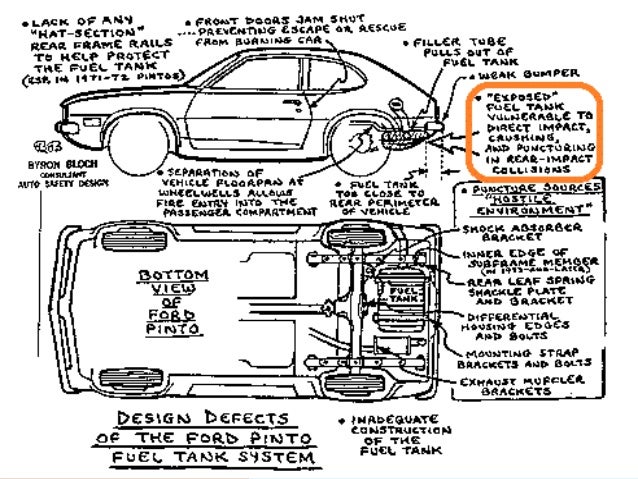 • LACK OF ANY
"HAT-SECTION"
REAR FRAME RAILS
TO HELP PROTECT
THE FUEL TANK
(ESP. IN 1971-72 PINTOS)
• FRONT DOORS JAM SHUT
PREVENTING ESCAPE OR RESCUE
FROM BURNING CAR
• FILLER TUBE
PULLS OUT OF
FUEL TANK
• WEAK BUMPER
• "EXPOSED"
FUEL TANK
VULNERABLE TO
DIRECT IMPACT,
CRUSHING,
AND PUNCTURING
IN REAR-IMPACT
COLLISIONS
BYRON BLOCH
CONSULTANT
AUTO SAFETY DESIGN
• SEPARATION OF
VEHICLE FLOORPAN AT
WHEELWELLS ALLOWS
FIRE ENTRY INTO THE
PASSENGER COMPARTMENT
• FUEL TANK
TOO CLOSE TO
REAR PERIMETER
OF VEHICLE
• PUNCTURE SOURCES
"HOSTILE
ENVIRONMENT"
SHOCK ABSORBER
BRACKET
INNER EDGE OF
SUBFRAME MEMBER
(ON 1973-AND-LATER)
REAR LEAF SPRING
SHACKLE PLATE
AND BRACKET
DIFFERENTIAL
HOUSING EDGES
AND BOLTS
MOUNTING STRAP
BRACKETS AND BOLTS
EXHAUST MUFFLER
BRACKETS
BOTTOM
VIEW
OF
FORD
PINTO
FUEL
TANK
DESIGN DEFECTS
OF THE FORD PINTO
FUEL TANK SYSTEM
• INADEQUATE
CONSTRUCTION
OF THE
FUEL TANK